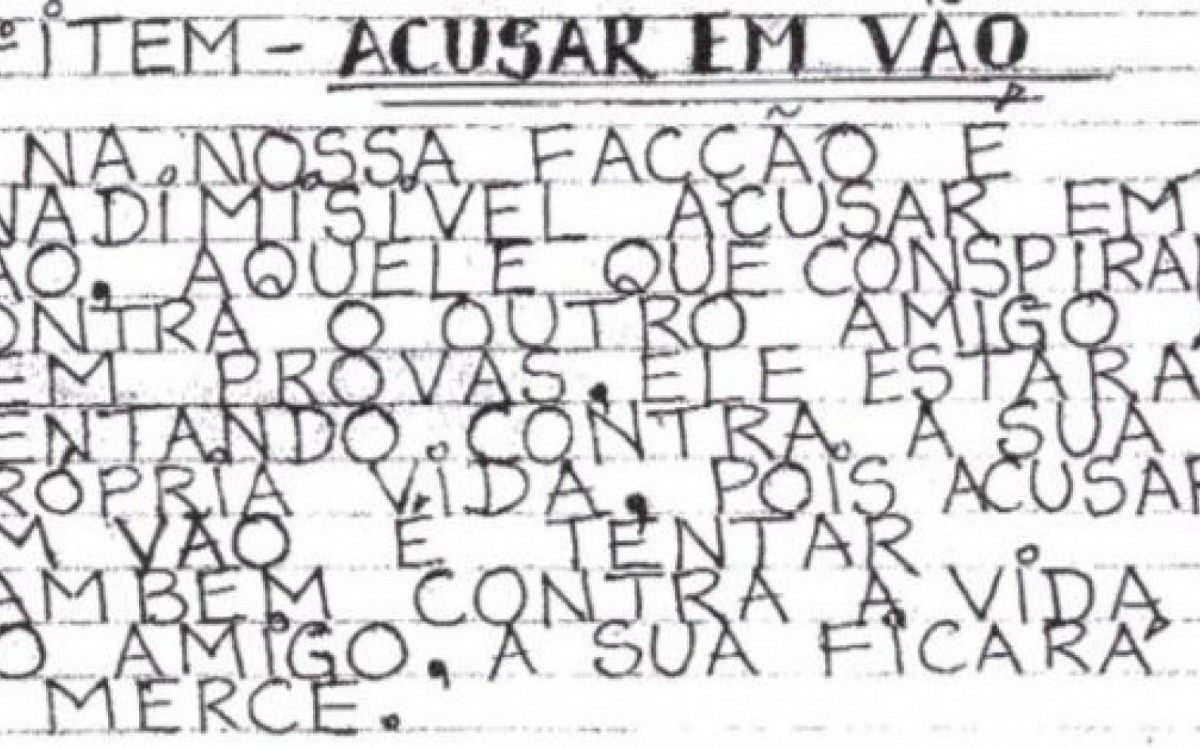 º ITEM - ACUSAR EM VÃO
NA NOSSA FACÇÃO É
NADIMISIVEL ACUSAR EM
AO, AQUELE QUE CONSPIRAR
ONTRA O OUTRO AMIGO
EM PROVAS. ELE ESTARA
ENTANDO CONTRA A SUA
ROPRIA VIDA, POIS ACUSAR
M VAO É TENTAR
AMBEM CONTRA A VIDA
O AMIGO, A SUA FICARÁ
MERCE.